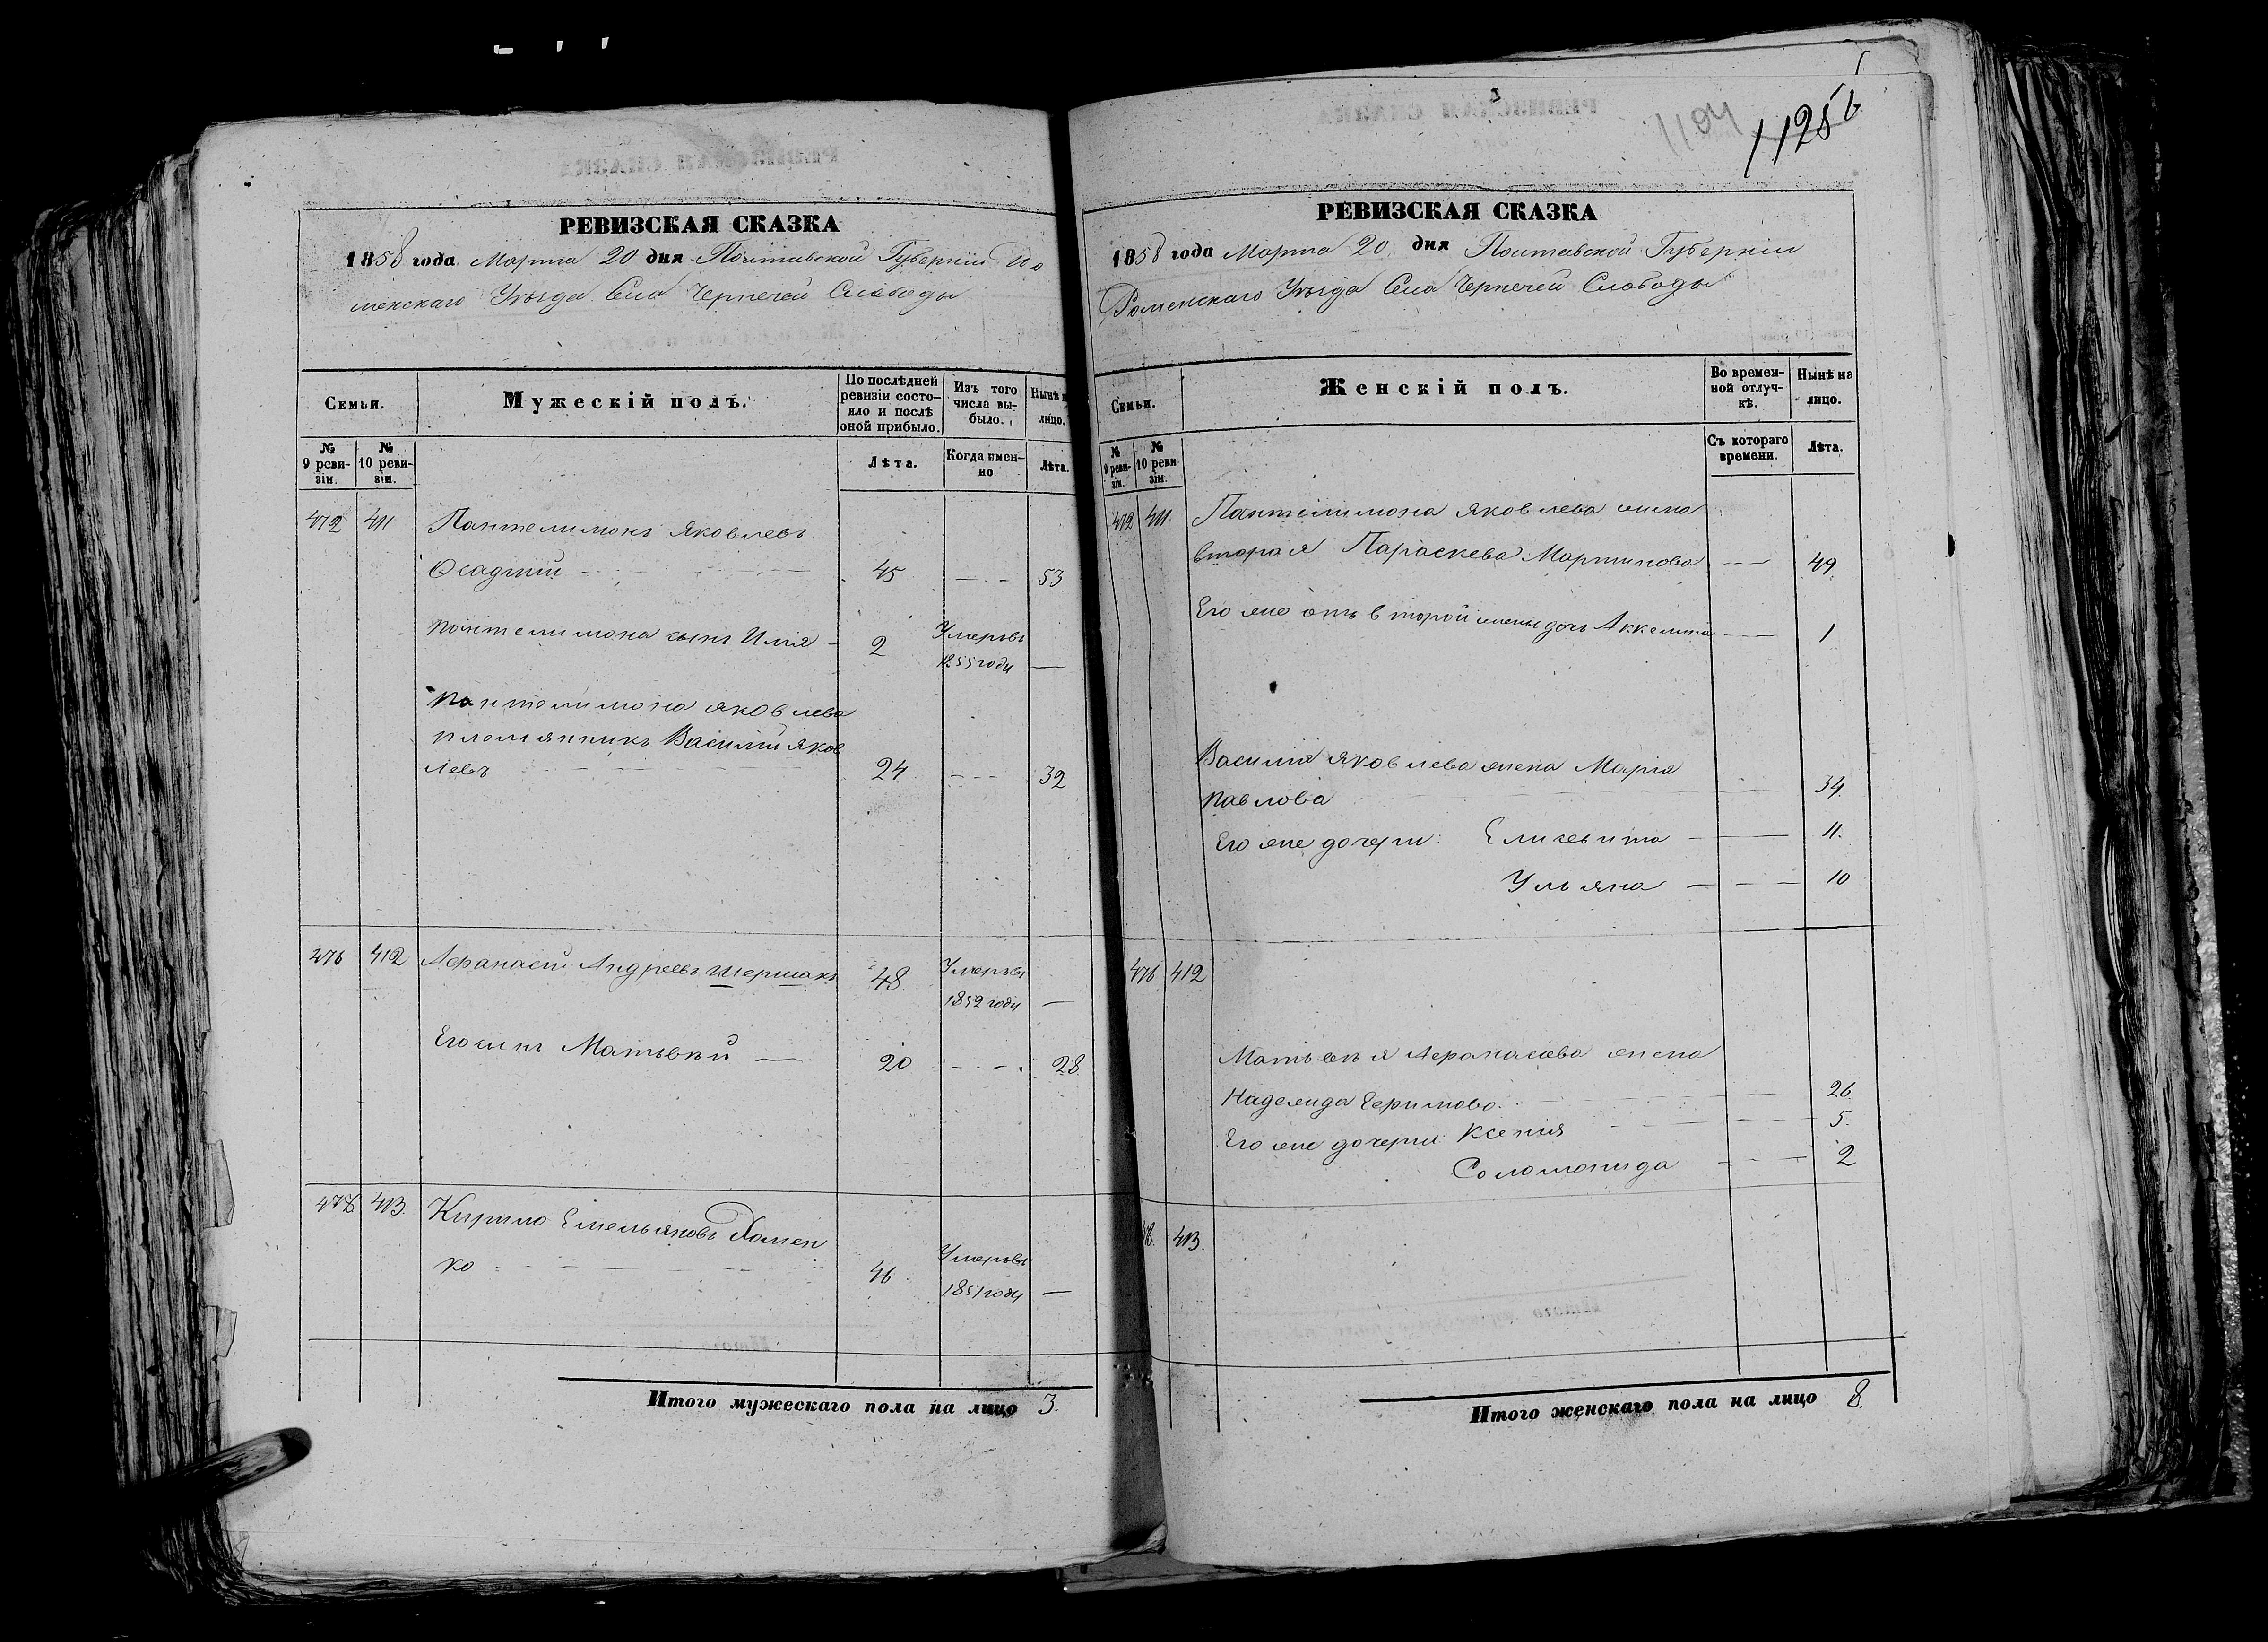 1125
1104
РЕВИЗСКАЯ СКАЗКА
1858 года Марта 20 дня Полтавской Губерніи Ро
менскаго Уѣзда Села Чернечей Слободы
Семьи.
Мужескій полъ.
По послѣдней ревизіи состояло и послѣ оной прибыло.
Изъ того числа выбыло.
Нынѣ на лицо.
№ 9 ревизіи.
№ 10 ревизіи.
Лѣта.
Когда именно.
Лѣта.
472 411 Пантелимонъ Яковлевъ
Осадчий 45 53
Пантелимона сынъ Илія 2 Умеръ въ
1855 году
Пантелимона Яковлева
племянникъ Василий Яков
левъ 24 32
476 412 Афанасий Андреевъ Шершакъ 48 Умеръ въ
1852 году
Его сынъ Матвѣй 20 28
478 413. Кирило Емельяновъ Хомен
ко 46 Умеръ въ
1851 году
Итого мужескаго пола на лицо 3.
РЕВИЗСКАЯ СКАЗКА
1858 года Марта 20 дня Полтавской Губерніи
Роменскаго Уѣзда Села Чернечей Слободы
Семьи.
Женскій полъ.
Во временной отлучкѣ.
Нынѣ на лицо.
№ 9 ревизіи.
№ 10 ревизіи.
Съ котораго времени.
Лѣта.
472 411 Пантелимона Яковлева жена
вторая Параскева Мартинова 49
Его же отъ второй жены дочь Аккелина 1
Василия Яковлева жена Марія
Павлова 34
Его же дочери: Елисевита 11.
Ульяна 10
476 412
Матвѣя Афанасіева жена
Надежда 26
Его же дочери Ксенія 5.
Соломонида 2
478. 413.
Итого женскаго пола на лицо 8.